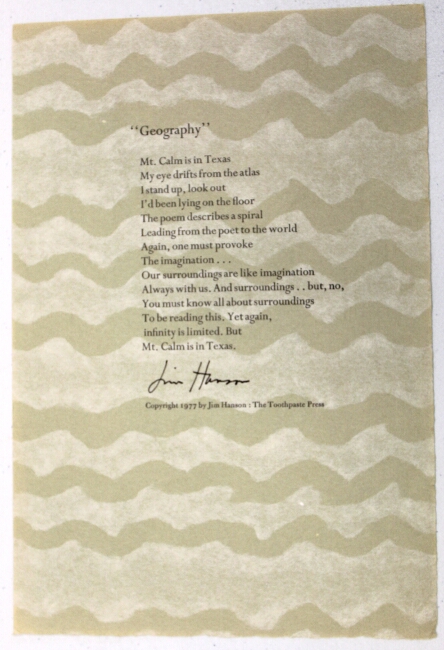 “Geography”
Mt. Calm is in Texas
My eye drifts from the atlas
I stand up, look out
I'd been lying on the floor
The poem describes a spiral
Leading from the poet to the world
Again, one must provoke
The imagination . . .
Our surroundings are like imagination
Always with us. And surroundings . . but, no,
You must know all about surroundings
To be reading this. Yet again,
infinity is limited. But
Mt. Calm is in Texas.
Jim Hanson
Copyright 1977 by Jim Hanson : The Toothpaste Press